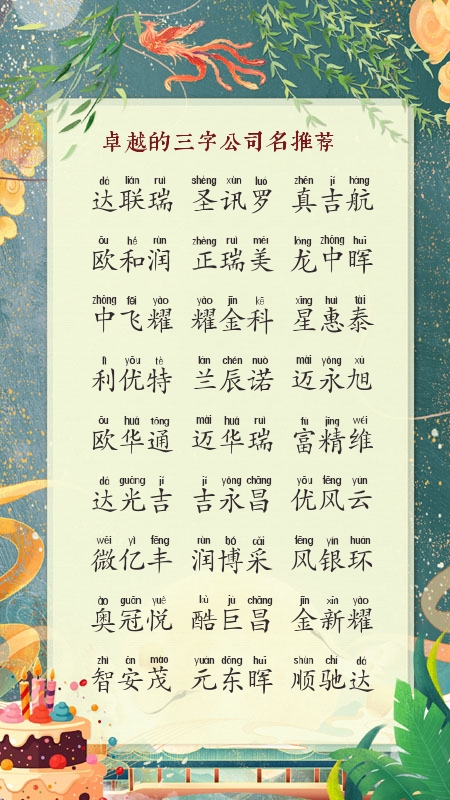 卓越的三字公司名推荐
dá lián ruì shèng xùn luó zhēn jí háng
达联瑞 圣讯罗 真吉航
ōu hé rùn zhèng ruì měi lóng zhōng huī
欧和润 正瑞美 龙中晖
zhōng fēi yào yào jīn kē xīng huì tài
中飞耀 耀金科 星惠泰
lì yōu tè lán chén nuò mài yǒng xù
利优特 兰辰诺 迈永旭
ōu huá tōng mài huá ruì fù jīng wéi
欧华通 迈华瑞 富精维
dá guāng jí jí yǒng chāng yōu fēng yún
达光吉 吉永昌 优风云
wēi yì fēng rùn bó cǎi fēng yín huán
微亿丰 润博采 风银环
ào guān yuè kù jù chāng jīn xīn yào
奥冠悦 酷巨昌 金新耀
zhì ān mào yuán dōng huī shùn chí dá
智安茂 元东晖 顺驰达